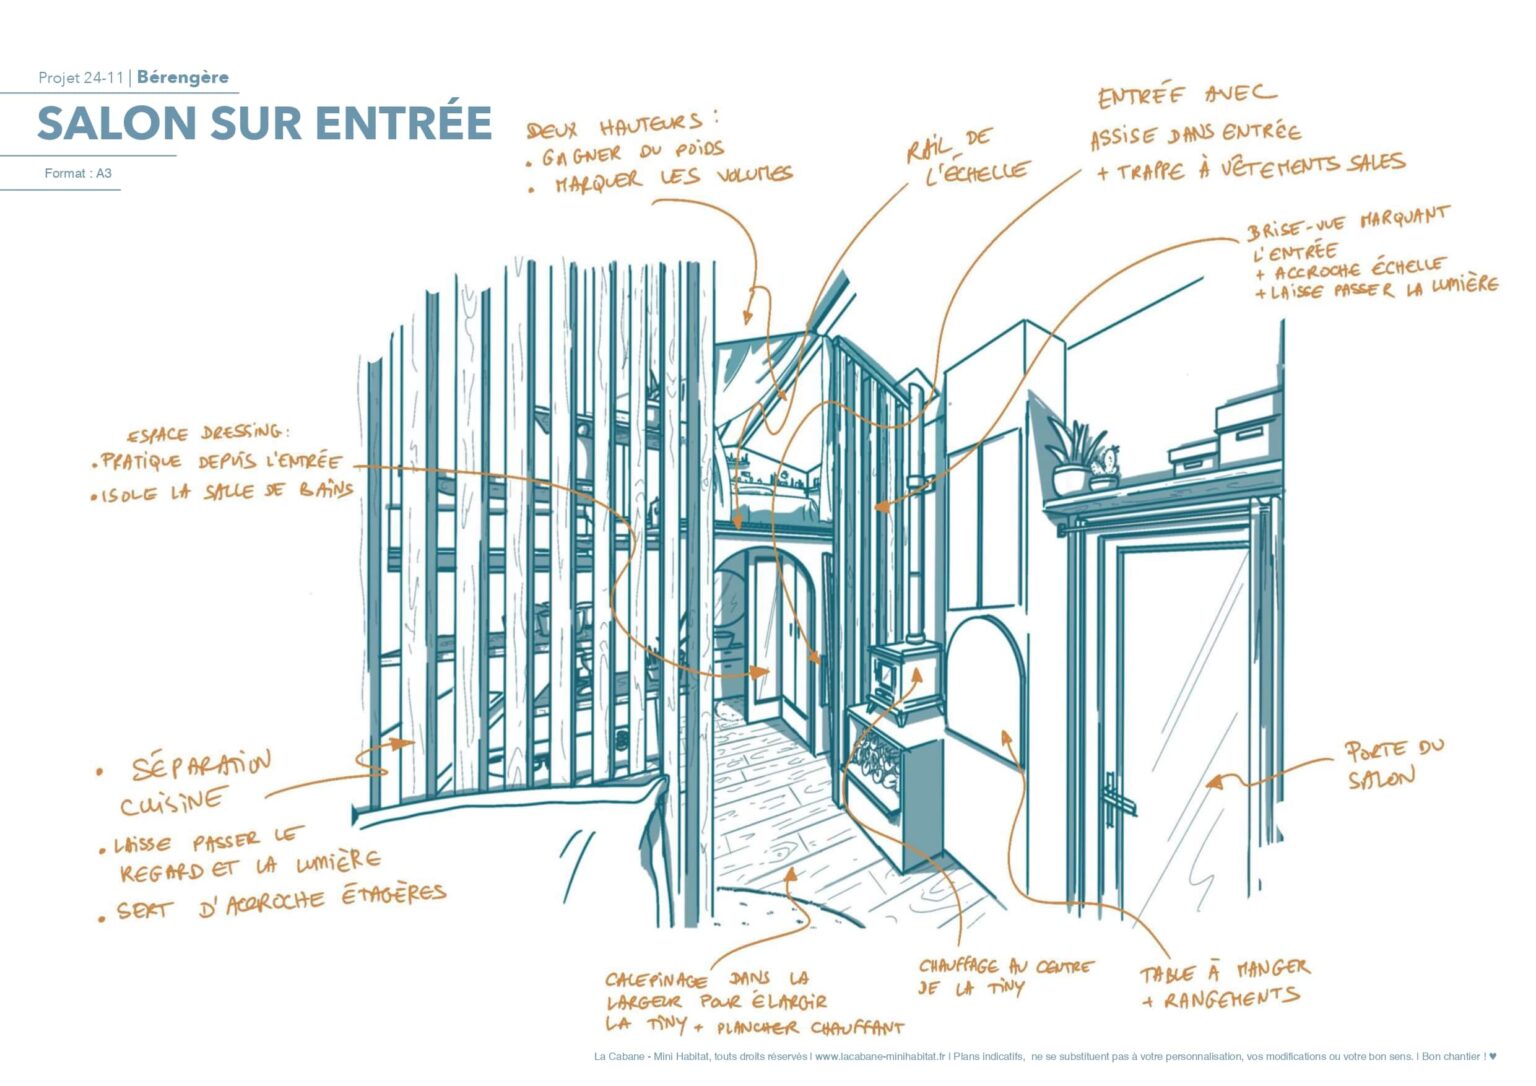 Projet 24-11 | Bérengère
SALON SUR ENTRÉE
Format : A3
DEUX HAUTEURS :
• GAGNER DU POIDS
• MARQUER LES VOLUMES
RAIL DE
L'ÉCHELLE
ENTRÉE AVEC
ASSISE DANS ENTRÉE
+ TRAPPE À VÊTEMENTS SALES
BRISE-VUE MARQUANT
L'ENTRÉE
+ ACCROCHE ÉCHELLE
+ LAISSE PASSER LA LUMIÈRE
ESPACE DRESSING :
• PRATIQUE DEPUIS L'ENTRÉE
• ISOLE LA SALLE DE BAINS
• SÉPARATION
CUISINE
• LAISSE PASSER LE
REGARD ET LA LUMIÈRE
• SERT D'ACCROCHE ÉTAGÈRES
PORTE DU
SALON
CALEPINAGE DANS LA
LARGEUR POUR ÉLARGIR
LA TINY + PLANCHER CHAUFFANT
CHAUFFAGE AU CENTRE
DE LA TINY
TABLE À MANGER
+ RANGEMENTS
La Cabane - Mini Habitat, touts droits réservés I www.lacabane-minihabitat.fr I Plans indicatifs, ne se substituent pas à votre personnalisation, vos modifications ou votre bon sens. I Bon chantier ! ♥